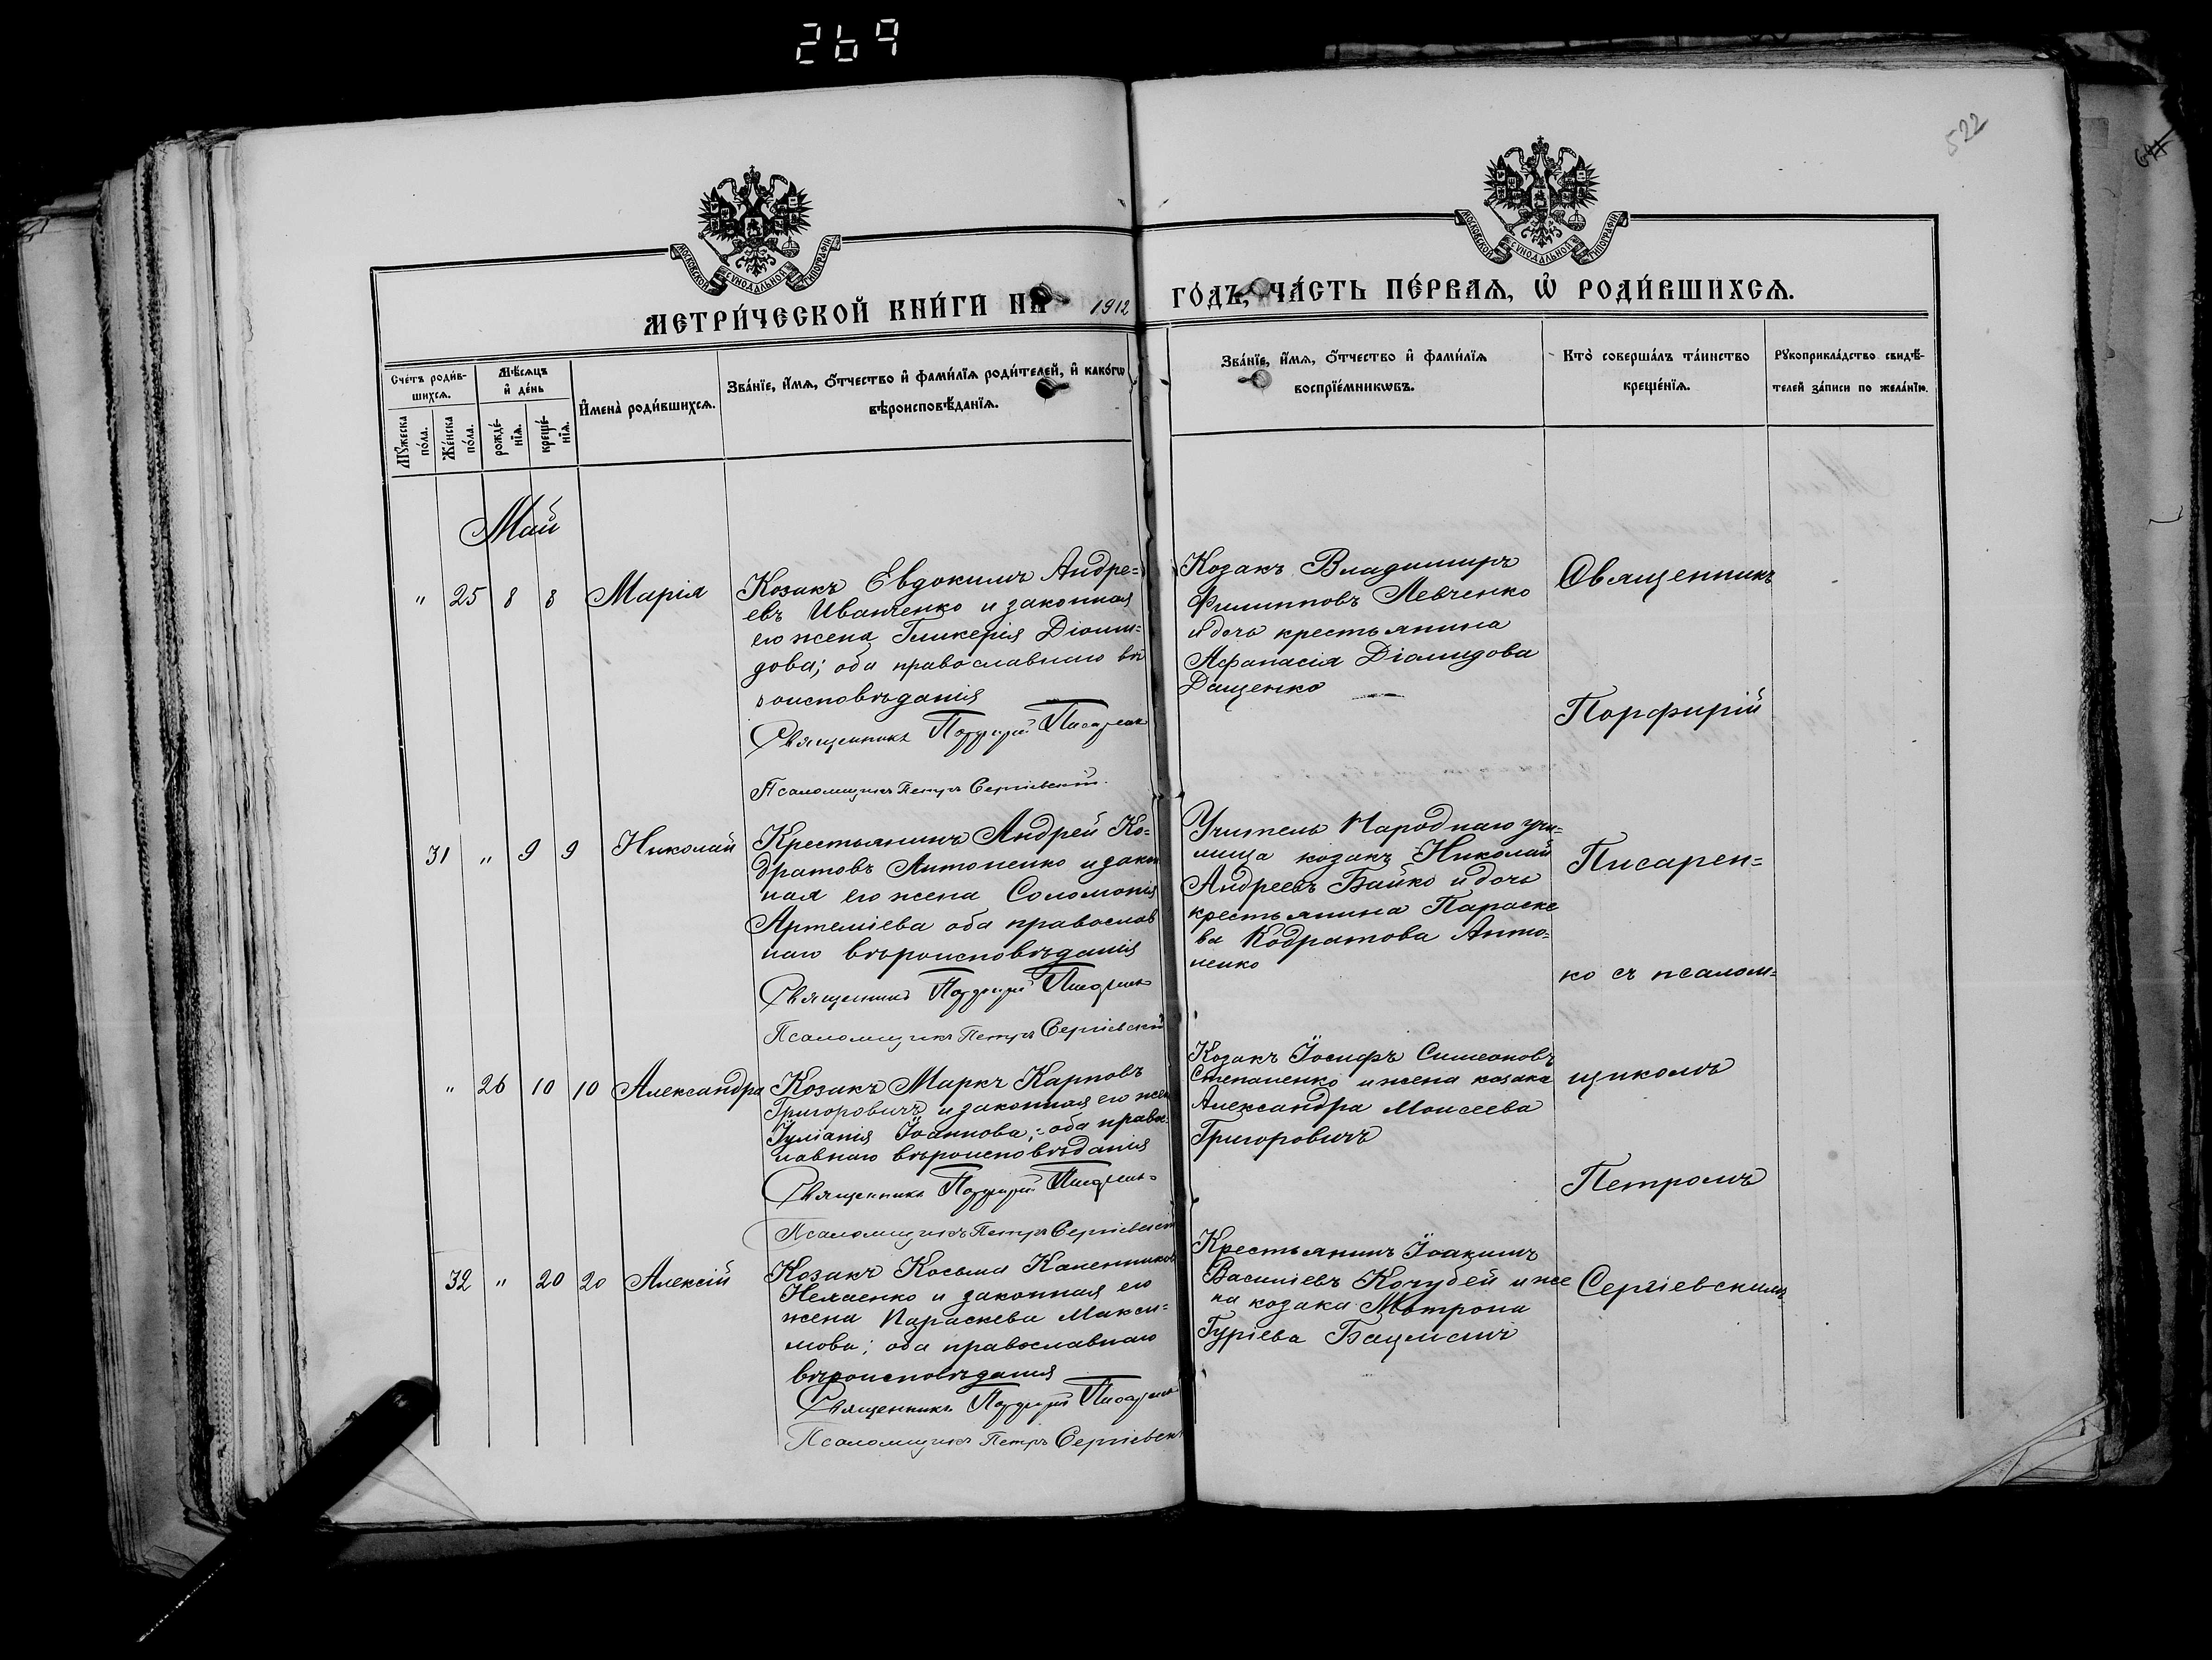 269
522
МОСКОВСКОЙ СѴНОДАЛЬНОЙ ТИПОГРАФІИ
МОСКОВСКОЙ СѴНОДАЛЬНОЙ ТИПОГРАФІИ
МЕТРИ́ЧЕСКОЙ КНИ́ГИ НА 1912 ГО́ДЪ, ЧА́СТЬ ПЕ́РВАѦ, Ѽ РОДИ́ВШИХСѦ.
Сче́тъ роди́в-
шихсѧ.
Мꙋ́жеска по́ла.
Же́нска по́ла.
Мѣ́сѧцъ и҆ де́нь
рожде́-
нїѧ.
креще́-
нїѧ.
И҆мена̀ роди́вшихсѧ.
Зва́нїе, и҆́мѧ, ѻ҆́тчество и҆ фами́лїѧ роди́телей, и҆ како́гѡ
вѣроисповѣ́данїѧ.
Зва́нїе, и҆́мѧ, ѻ҆́тчество и҆ фами́лїѧ
воспрїе́мникѡвъ.
Кто̀ соверша́лъ та́инство
креще́нїѧ.
Рꙋкоприкла́дство свидѣ́-
телей за́писи по жела́нїю.
Май
" 25 8 8 Марія
Козакъ Евдокимъ Андре=
евъ Иванченко и законная
его жена Гликерія Діоми=
дова; оба православнаго вѣ
роисповѣданія
Священникъ Порфирій Писаренко
Псаломщикъ Петръ Сергіевскій.
Козакъ Владимиръ
Филипповъ Левченко
и дочь крестьянина
Афанасія Діомидова
Дащенко
31 " 9 9 Николай
Крестьянинъ Андрей Ко=
дратовъ Антоненко и закон
ная его жена Соломонія
Артеміева оба православ
наго вѣроисповѣданія
Священникъ Порфирій Писаренко
Псаломщикъ Петръ Сергіевскій
Учитель Народнаго учи=
лища козакъ Николай
Андреевъ Байко и дочь
крестьянина Параске
ва Кодратова Анто=
ненко
" 26 10 10 Александра
Козакъ Маркъ Карповъ
Григоровичъ и законная его жена
Іуліанія Іоаннова; оба право=
славнаго вѣроисповѣданія
Священникъ Порфирій Писаренко
Псаломщикъ Петръ Сергіевскій
Козакъ Іосифъ Симеоновъ
Степаненко и жена козака
Александра Моисеева
Григоровичъ
32 " 20 20 Алексій
Козакъ Косьма Каленниковъ
и законная его
жена Параскева Макси=
мова; оба православнаго
вѣроисповѣданія
Священникъ Порфирій Писаренко
Псаломщикъ Петръ Сергіевск
Крестьянинъ Іоакимъ
Василіевъ Кочубей и же
на козака Матрона
Гуріева
Священникъ
Порфирій
Писарен=
ко съ псалом=
щикомъ
Петромъ
Сергіевскимъ